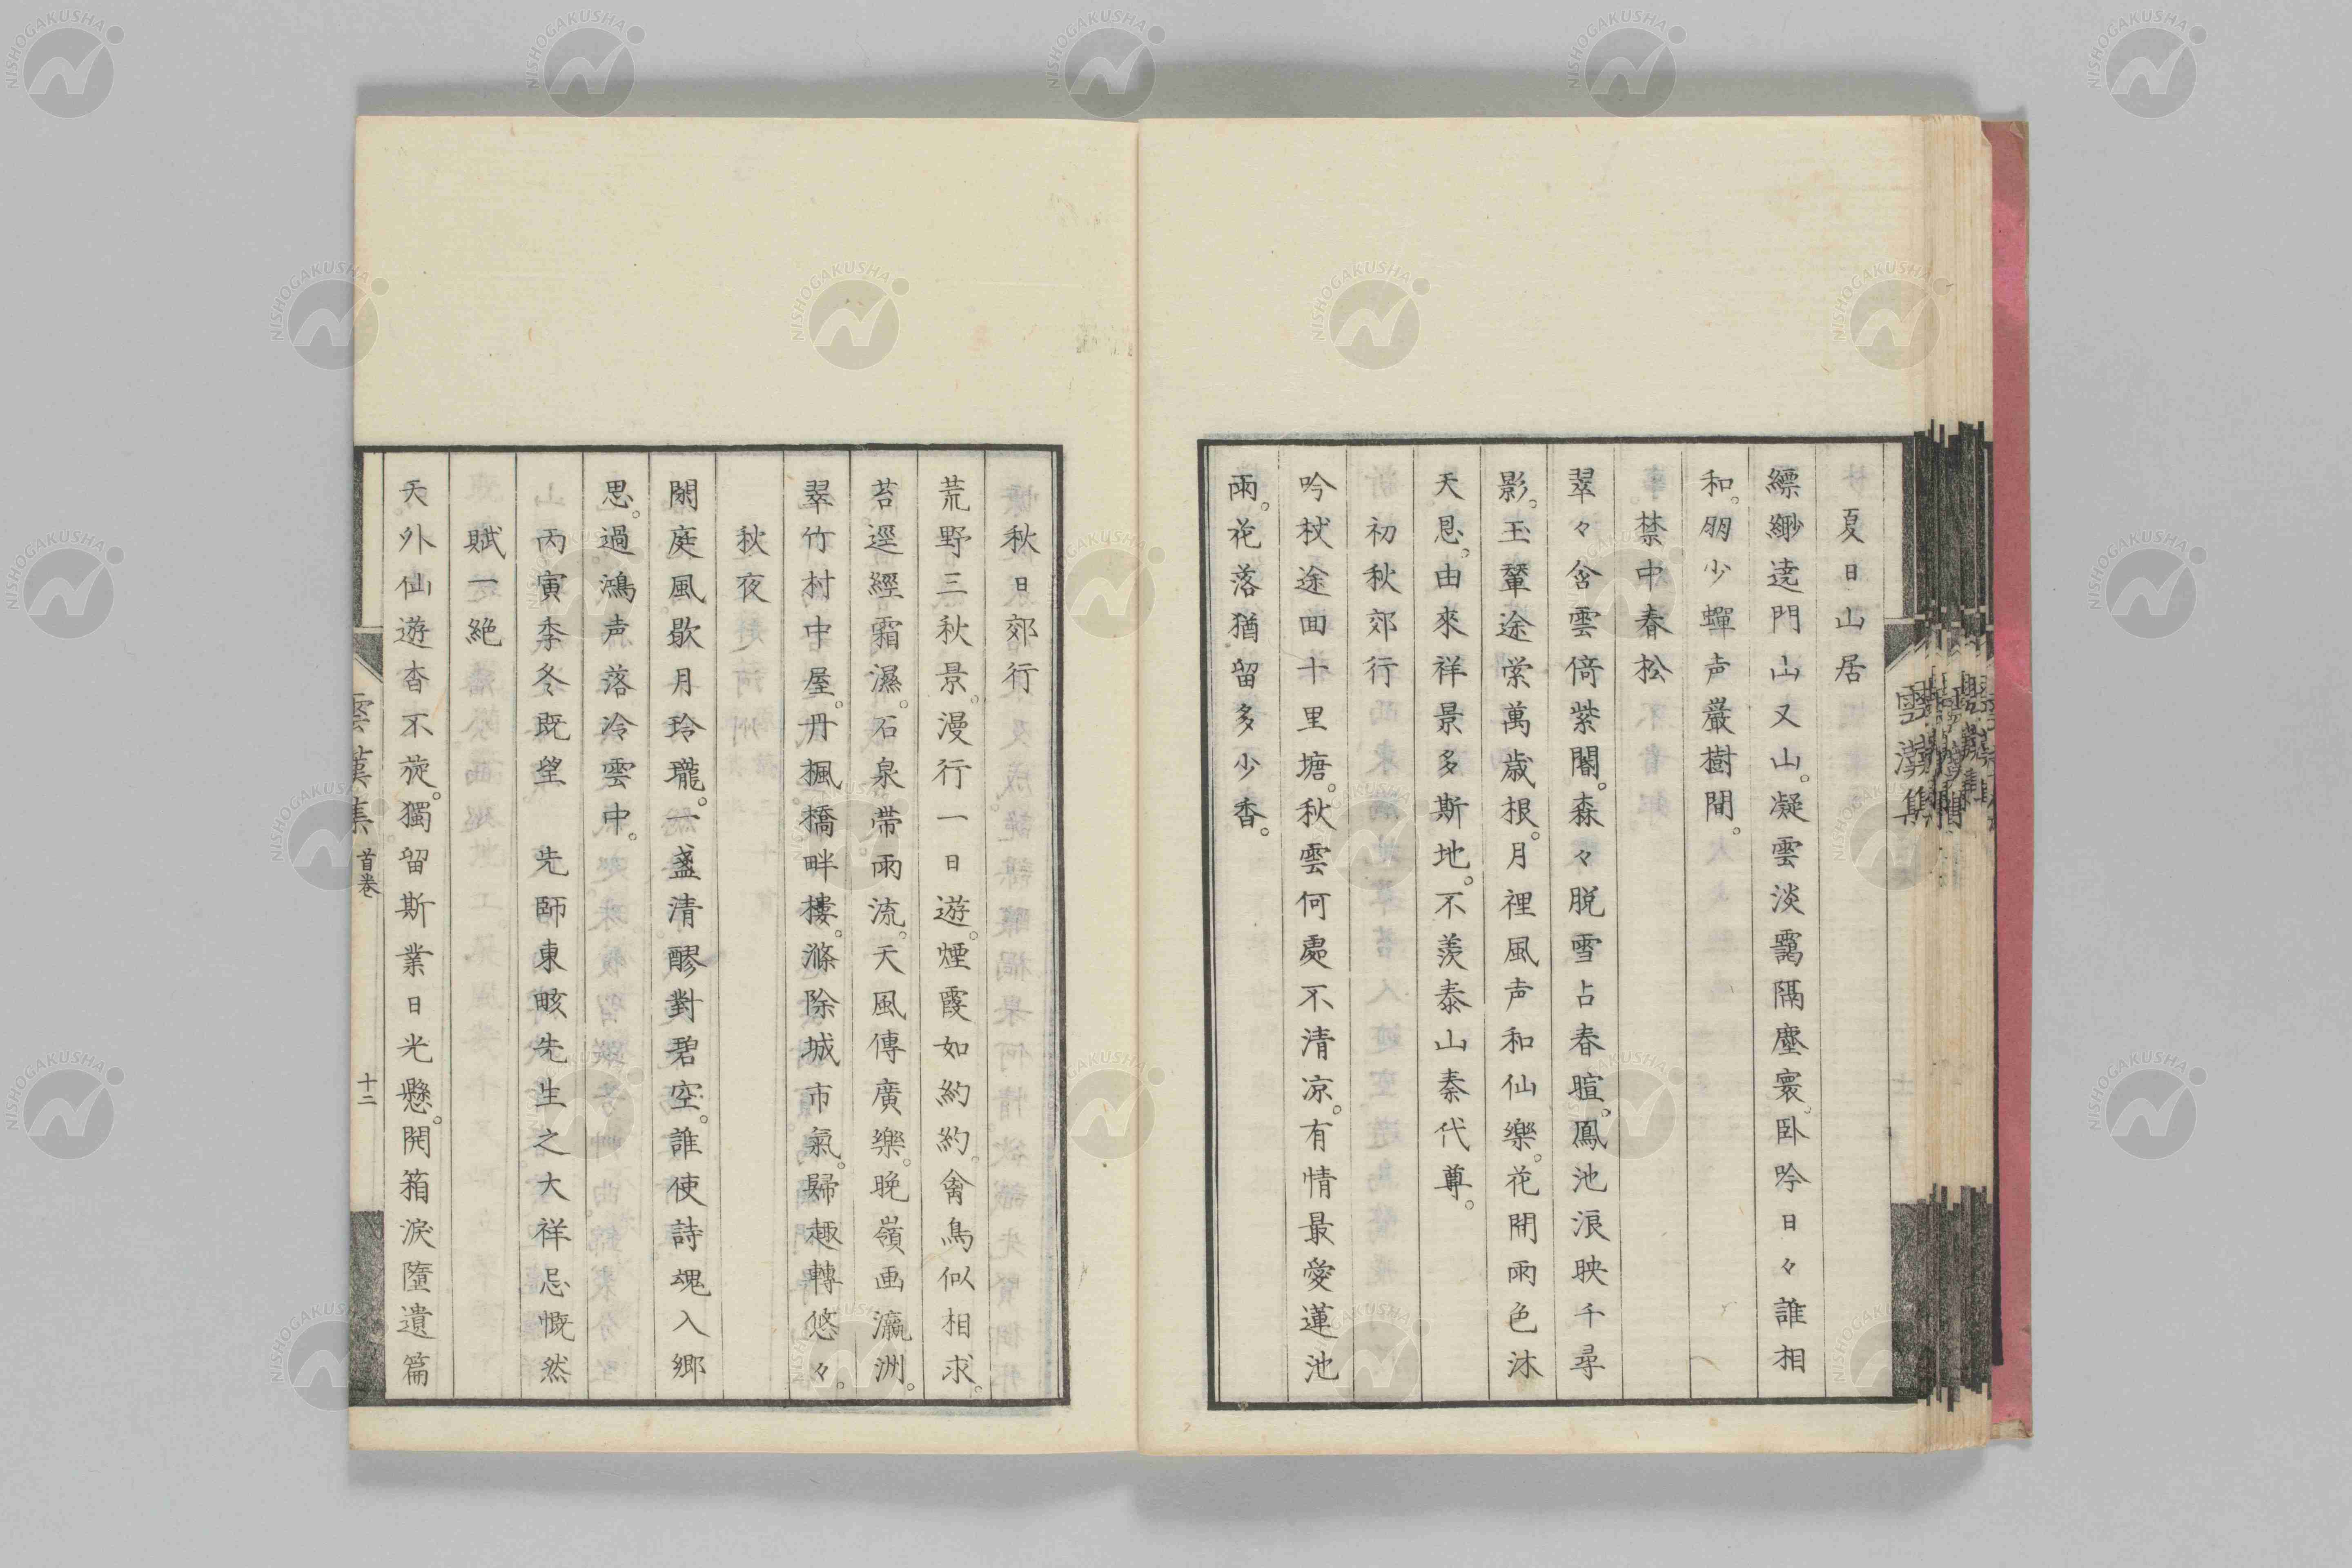 夏日山居
縹緲遶門山又山。凝雲淡靄隔塵寰。卧吟日々誰相
和。朗少蟬声巌樹間。
禁中春松
翠々含雲倚紫闇。森々脱雪占春暄。鳳池浪映千尋
影。玉輦途縈萬歳根。月裡風声和仙樂。花開雨色沐
天恩。由來祥景多斯地。不羨泰山秦代尊。
初秋郊行
吟杖途囬十里塘。秋雲何處不清凉。有情最愛蓮池
雨。花落猶留多少香。
雲漢集
秋日郊行
荒野三秋景。漫行一日遊。煙霞如約約。禽鳥似相求。
苔逕經霜濕。石泉帯雨流。天風傳廣樂。晩嶺画瀛洲。
翠竹村中屋。丹楓橋畔樓。滌除城市氣。歸趣轉悠々。
秋夜
閑庭風歇月玲瓏。一盞清醪對碧空。誰使詩魂入郷
思。過鴻声落冷雲中。
丙寅季冬既望 先師東畡先生之大祥忌慨然
賦一絶
天外仙遊杳不旋。獨留斯業日光懸。開箱淚墮遺篇
雲漢集 首卷 十二
NISHOGAKUSHA